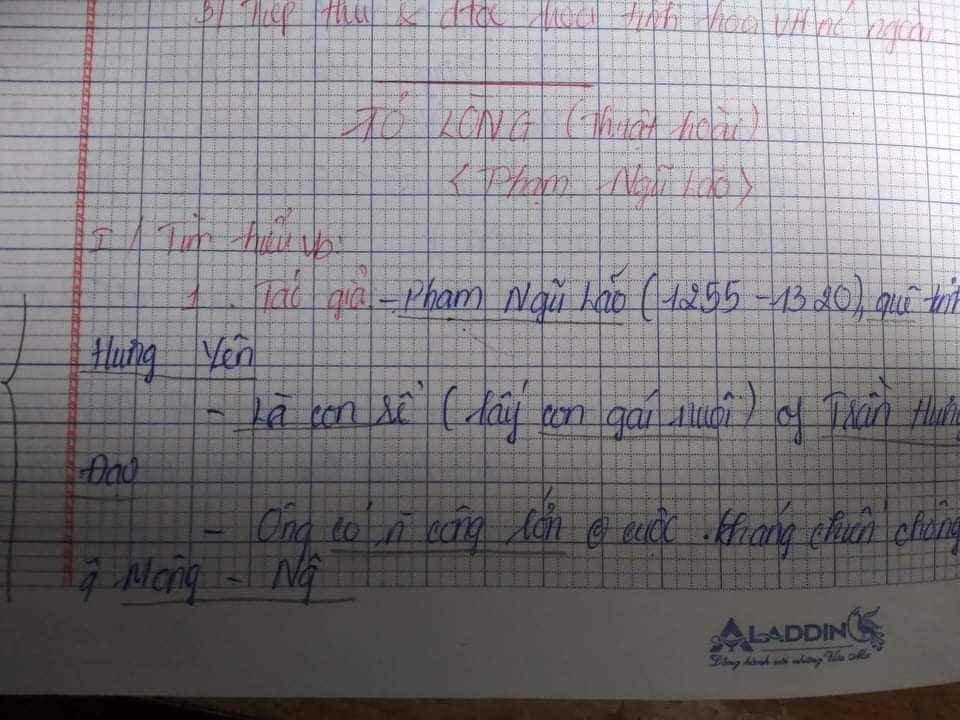 3/ Tiếp thu & đtác hoá tinh hoa VH nc ngoài
TỎ LÒNG (Thuật hoài)
< Phạm Ngũ Lão >
I / Tìm hiểu vb:
1. Tác giả - Phạm Ngũ Lão (1255 - 1320), quê tỉnh
Hưng Yên
- Là con rể (lấy con gái nuôi) of Trần Hưng
Đạo
- Ông có n công lớn @ cuộc kháng chiến chống
q Mông - Ng
ALADDIN